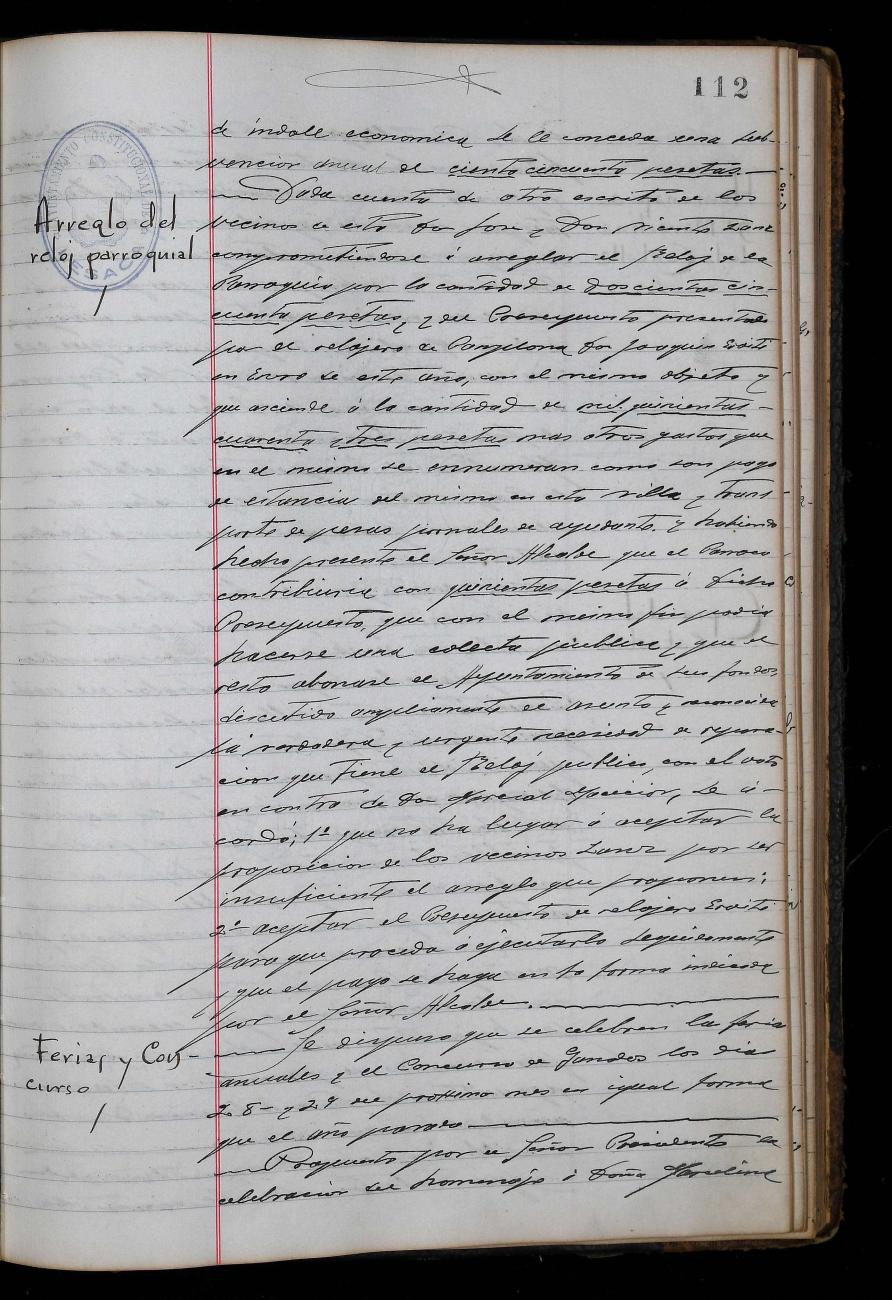 112
de índole economica se le conceda una sub-
vencion anual de ciento cincuenta pesetas.
Dada cuenta de otro escrito de los
Arreglo del
reloj parroquial
vecinos de esta Don Jose y Don Vicente
comprometiéndose á arreglar el Reloj de la
Parroquia por la cantidad de doscientas cin-
cuenta pesetas, y del Presupuesto presentado
por el relojero de Pamplona Don Joaquin
en Enero de este año, con el mismo objeto y
que asciende á la cantidad de mil quinientas
cuarenta y tres pesetas mas otros gastos que
en el mismo se ennumeran como son pago
de estancia del mismo en esta villa y trans-
porte de pesas jornales de ayudante. y habiendo
hecho presente el Señor Alcalde que el Parroco
contribuiria con quinientas pesetas á dicho
Presupuesto, que con el mismo fin podia
hacerse una colecta publica y que el
resto abonase el Ayuntamiento de sus fondos,
discutido ampliamente el asunto y reconocida
la verdadera y urgente necesidad de repara-
cion que tiene el Reloj publico, con el voto
en contra de Don Marcial, se a-
cordó; 1º que no ha lugar á aceptar la
proposicion de los vecinos por ser
insuficiente el arreglo que proponen;
2º aceptar el Presupuesto de relojero
para que proceda á ejecutarlo seguidamente
y que el pago se haga en la forma indicada
por el Señor Alcalde.
Ferias y Con-
curso
Se dispuso que se celebren la feria
anuales y el Concurso de Ganados los dias
28 y 29 del proximo mes en igual forma
que el año pasado
Propuesto por el Señor Presidente la
celebracion del homenaje á Doña